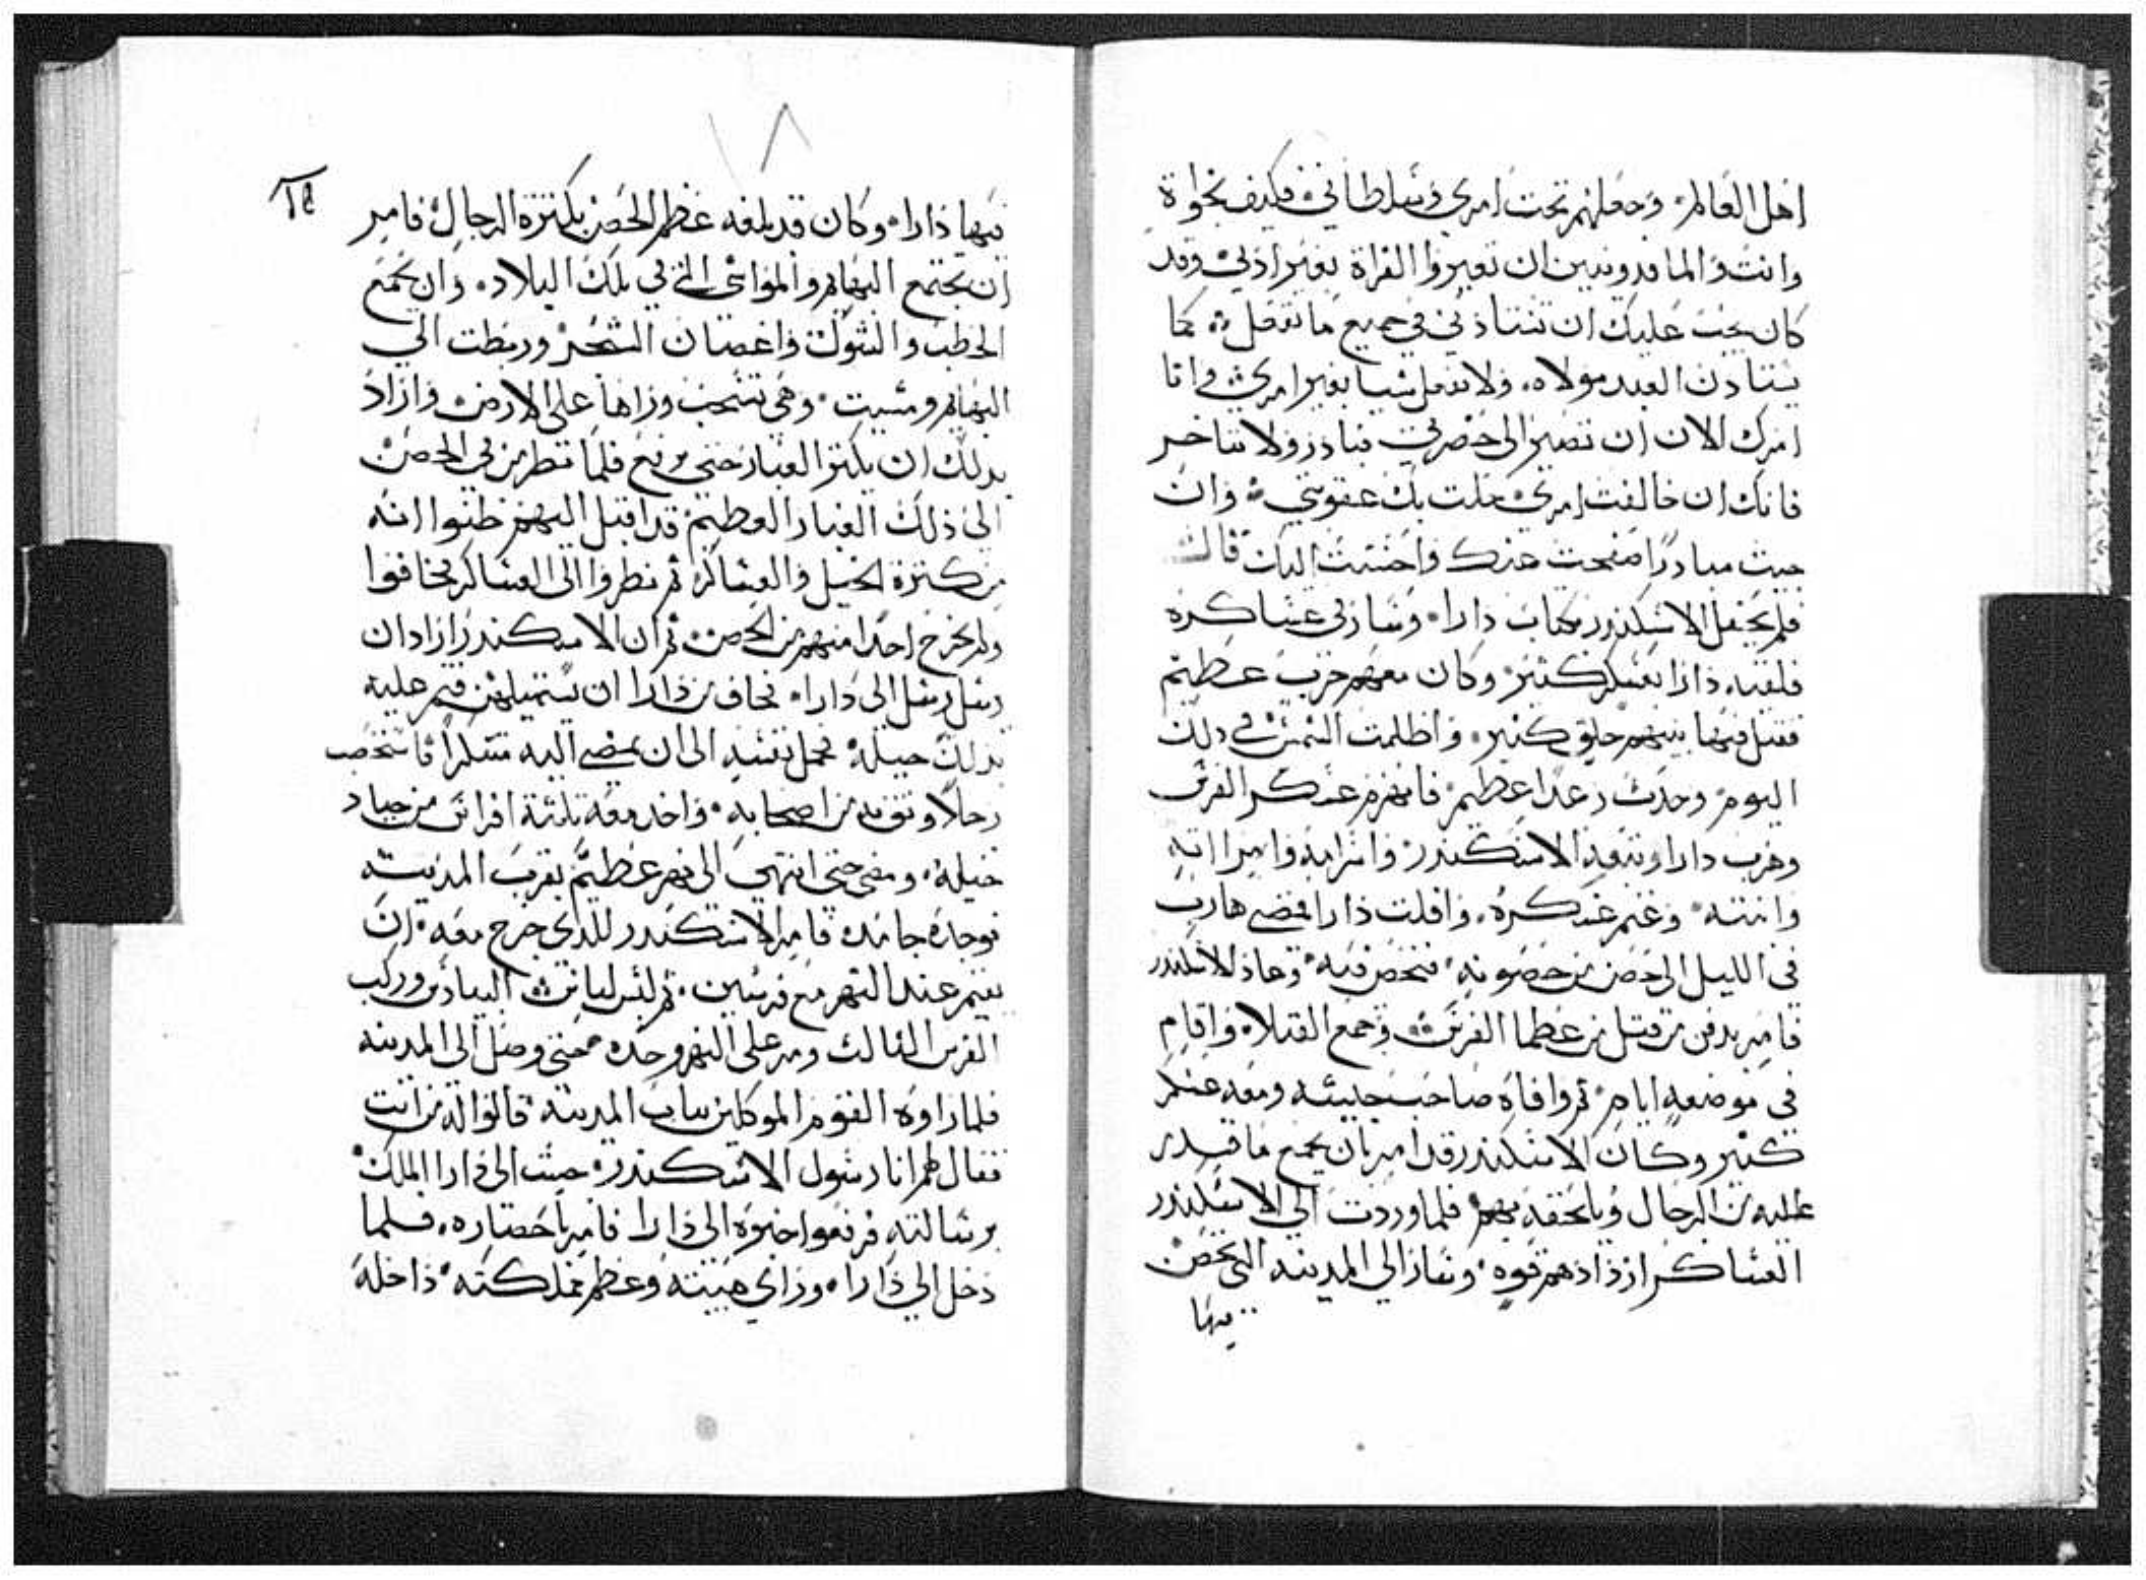 اهل العالم وجعلهم تحت امري وسلطاني فكيف تجراة
وانت والماقدونيين ان تعبروا الفراة بغير اذني وقد
كان يجب عليك ان تستاذني في جميع ما تفعله كما
يستاذن العبد مولاه ولا تفعل شيا بغير امري وانا
امرك الان ان تصير الى حضرتي فبادر ولا تتاخر
فانك ان خالفت امري حلت بك عقوبتي وان
جيت مبادرًا صفحت عنك واحسنت اليك قال
فلم يحفل الاسكندر بكتاب دارا وسار في عساكره
فلقيه دارا بعسكر كثير وكان معهم حرب عظيم
فقتل فيها بينهم خلق كثير واظلمت الشمس في ذلك
اليوم وحدث رعدا عظيم فانهزم عسكر الفرس
وهرب دارا وتبعه الاسكندر واسر امه وامراته
وابنته وغنم عسكره وافلت دارا فمضى هارب
فى الليل الى حصن من حصونه فتحصن فيه وعاد الاسكندر
فامر بدفن من قتل من عظما الفرس وجمع القتلاه واقام
فى موضعه ايام ثم وافاه صاحب جيشه ومعه عسكر
كثير وكان الاسكندر قد امر بان يجمع ما قدر
عليه من الرجال ويلحقه بهم فلما وردت الى الاسكندر
العساكر ازداد بهم قوه وسار الى المدينه التى تحصن
فيها
فيها دارا وكان قد بلغه عظم الحصن بكثرة الرجال فامر
ان يجتمع البهايم والمواشى التي في تلك البلاد وان يجمع
الحطب والشوك واغصان الشجر وربطت الي
البهايم ومشيت وهى تسحب وراها على الارض واراد
بذلك ان يكثر الغبار حتى يرتفع فلما نظر من في الحصن
الى ذلك الغبار العظيم قد اقبل اليهم ظنوا انه
من كثرة الخيل والعساكر ثم نظروا الى العساكر فخافوا
ولم يخرج احدا منهم من الحصن ثم ان الاسكندر اراد ان
يرسل رسل الى دارا فخاف من دارا ان يستميلهن فيتم عليه
بذلك حيلة فحمل نفسه الى ان يمضى اليه متنكرا فاستصحب
رجلاً وثق به من اصحابه واخد معه ثلثة افراس من جياد
خيله ومضى حتى انتهى الى نهر عظيم بقرب المدينة
فوجده جامده فامر الاسكندر للذى خرج معه ان
يقيم عند النهر مع فرسين ثم لبس لباس البيادى وركب
الفرس الثالث ومر على النهر وحده حتى وصل الى المدينه
فلما راوه القوم الموكلين بباب المدينة قالوا له من انت
فقال لهم انا رسول الاسكندر جيت الى دارا الملك
برسالته فرفعوا خبره الى دارا فامر باحضاره فلما
دخل الى دارا وراى هيبته وعظم مملكته داخله